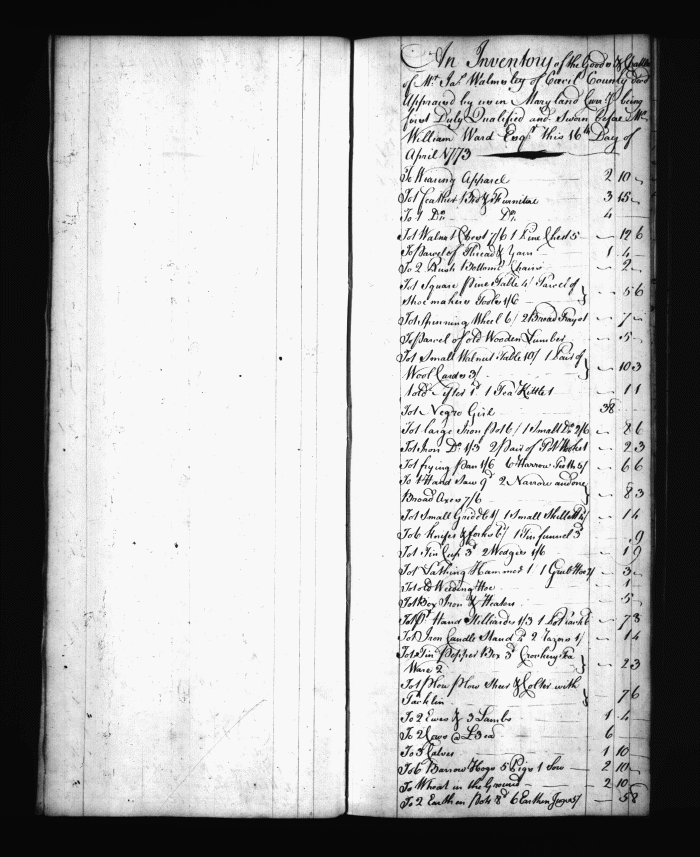 An Inventory of the Goods & Chattles
of Mr. Jas. Walmsley of Cecil County
Appraised by us in Maryland Curr.cy being
first Duly Qualified and Sworn before Mr.
William Ward Esqr. This 16th Day of
April 1773
To Wearing Apparel 2 10 "
To 1 Feather Bed & Furniture 3 15 "
To 1 Do. Do. 4
To 1 Walnut Chest 7/6 1 Pine Chest 5 " 12 6
To Parcel of Thread & Yarn 1 4 "
To 2 Rush Bottom Chairs " 2 "
To 1 Square Pine Table 4/ Parcel of
Shoemakers Tools 1/6 " 5 6
To 1 Spinning Wheel 6/ 2 Bread Trays 1 " 7 "
To Parcel of old Wooden Lumber " 5 "
To 1 Small Walnut Table 10/ 1 Pair of
Wool Cards 3/ " 10 3
1 old Sifter 1d 1 Tea Kittle 1 " 1 1
To 1 Negro Girl 38
To 1 large Iron Pot 6/ 1 Small Do. 2/6 " 8 6
To 1 Iron Do. 1/3 2 Pair of Pot Hooks 1 " 2 3
To 1 frying Pan 1/6 6 Harrow Teeth 5/ " 6 6
To 1 Hand Saw 9d 2 Narrow and one
Broad Axes 7/6 " 8 3
To 1 Small Grid 1/ 1 Small Skillett " 1 4
To 6 Knifes & forks 6/ 1 Tin funnel 3d 9
To 1 Tin Cup 3d 2 Wedges 1/6 " 1 9
To 1 Lathing Hammer 1 1 Grub Hoe 2/ " 3 "
To 1 old Weeding Hoe 1
To 1 Box Iron & Heaters " 5 "
To 1 pr. Hand Stilliards 1/3 1 " 7 3
To 1 Iron Candle Stand 2 Razors 1/ " 1 4
To 1 Tin Pepper Box 3d Crockery Tea
Ware 2 " 2 3
To 1 Plow Plow Shear & Colter with
Tacklin 7 6
To 2 Ewes & 3 Lambs 1 4 "
To 2 Cows @ £3 ea 6
To 3 Calves 1 10
To 6 Barrow Hogs 5 Pigs 1 Sow 2 10 "
To Wheat in the Ground 2 10 "
To 2 Earthen Pots 8d 6 Earthen Juggs 5/ " 5 8